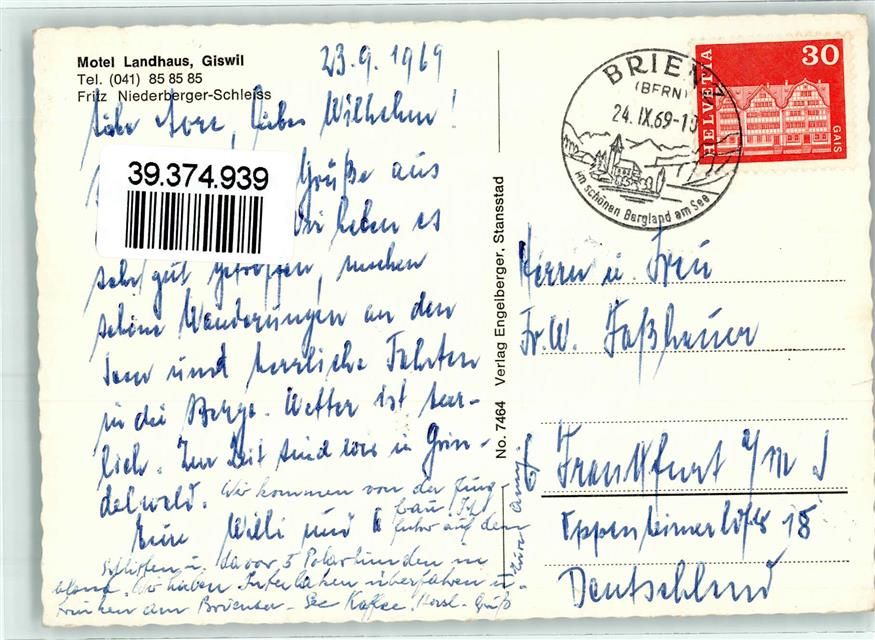 Motel Landhaus, Giswil
Tel. (041) 85 85 85
Fritz Niederberger-Schleiss
23.9.1969
liebe liebe Wilhelm!
39.374.939
Grüße aus
Wir haben es
sehr gut getroffen, machen
schöne Wanderungen an den
Seen und herrliche Fahrten
in die Berge. Wetter ist herr-
lich. Zur Zeit sind wir in Grin-
delwald. Wir kommen von der Jung-
frau. Ich
Eure Willi und
fuhr auf dem
Schlitten u. davor 5 Polarhunde
Wir haben Interlaken überfahren u.
trinken am Brienzer-See Kaffee. Herzl. Gruß
Eure
No. 7464 Verlag Engelberger, Stansstad
BRIENZ
(BERN)
24.IX.69-10
im schönen Bergland am See
HELVETIA
30
GAIS
Herrn u. Frau
Fr.W. Faßhauer
6 Frankfurt a/M
18
Deutschland